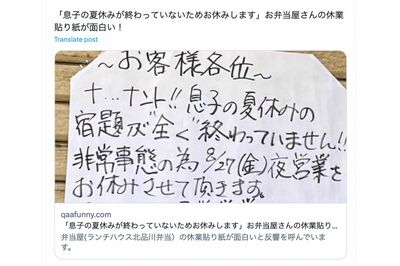 「息子の夏休みが終わっていないためお休みします」お弁当屋さんの休業
貼り紙が面白い！
Translate post
～お客様各位～
ナ…ナント!!息子の夏休みの
宿題が"全く"終わっていません!!
非常事態の為8/27(金)夜営業を
お休みさせて頂きます。
qaafunny.com
「息子の夏休みが終わっていないためお休みします」お弁当屋さんの休業貼り...
弁当屋(ランチハウス北品川弁当）の休業貼り紙が面白いと反響を呼んでいま
す。